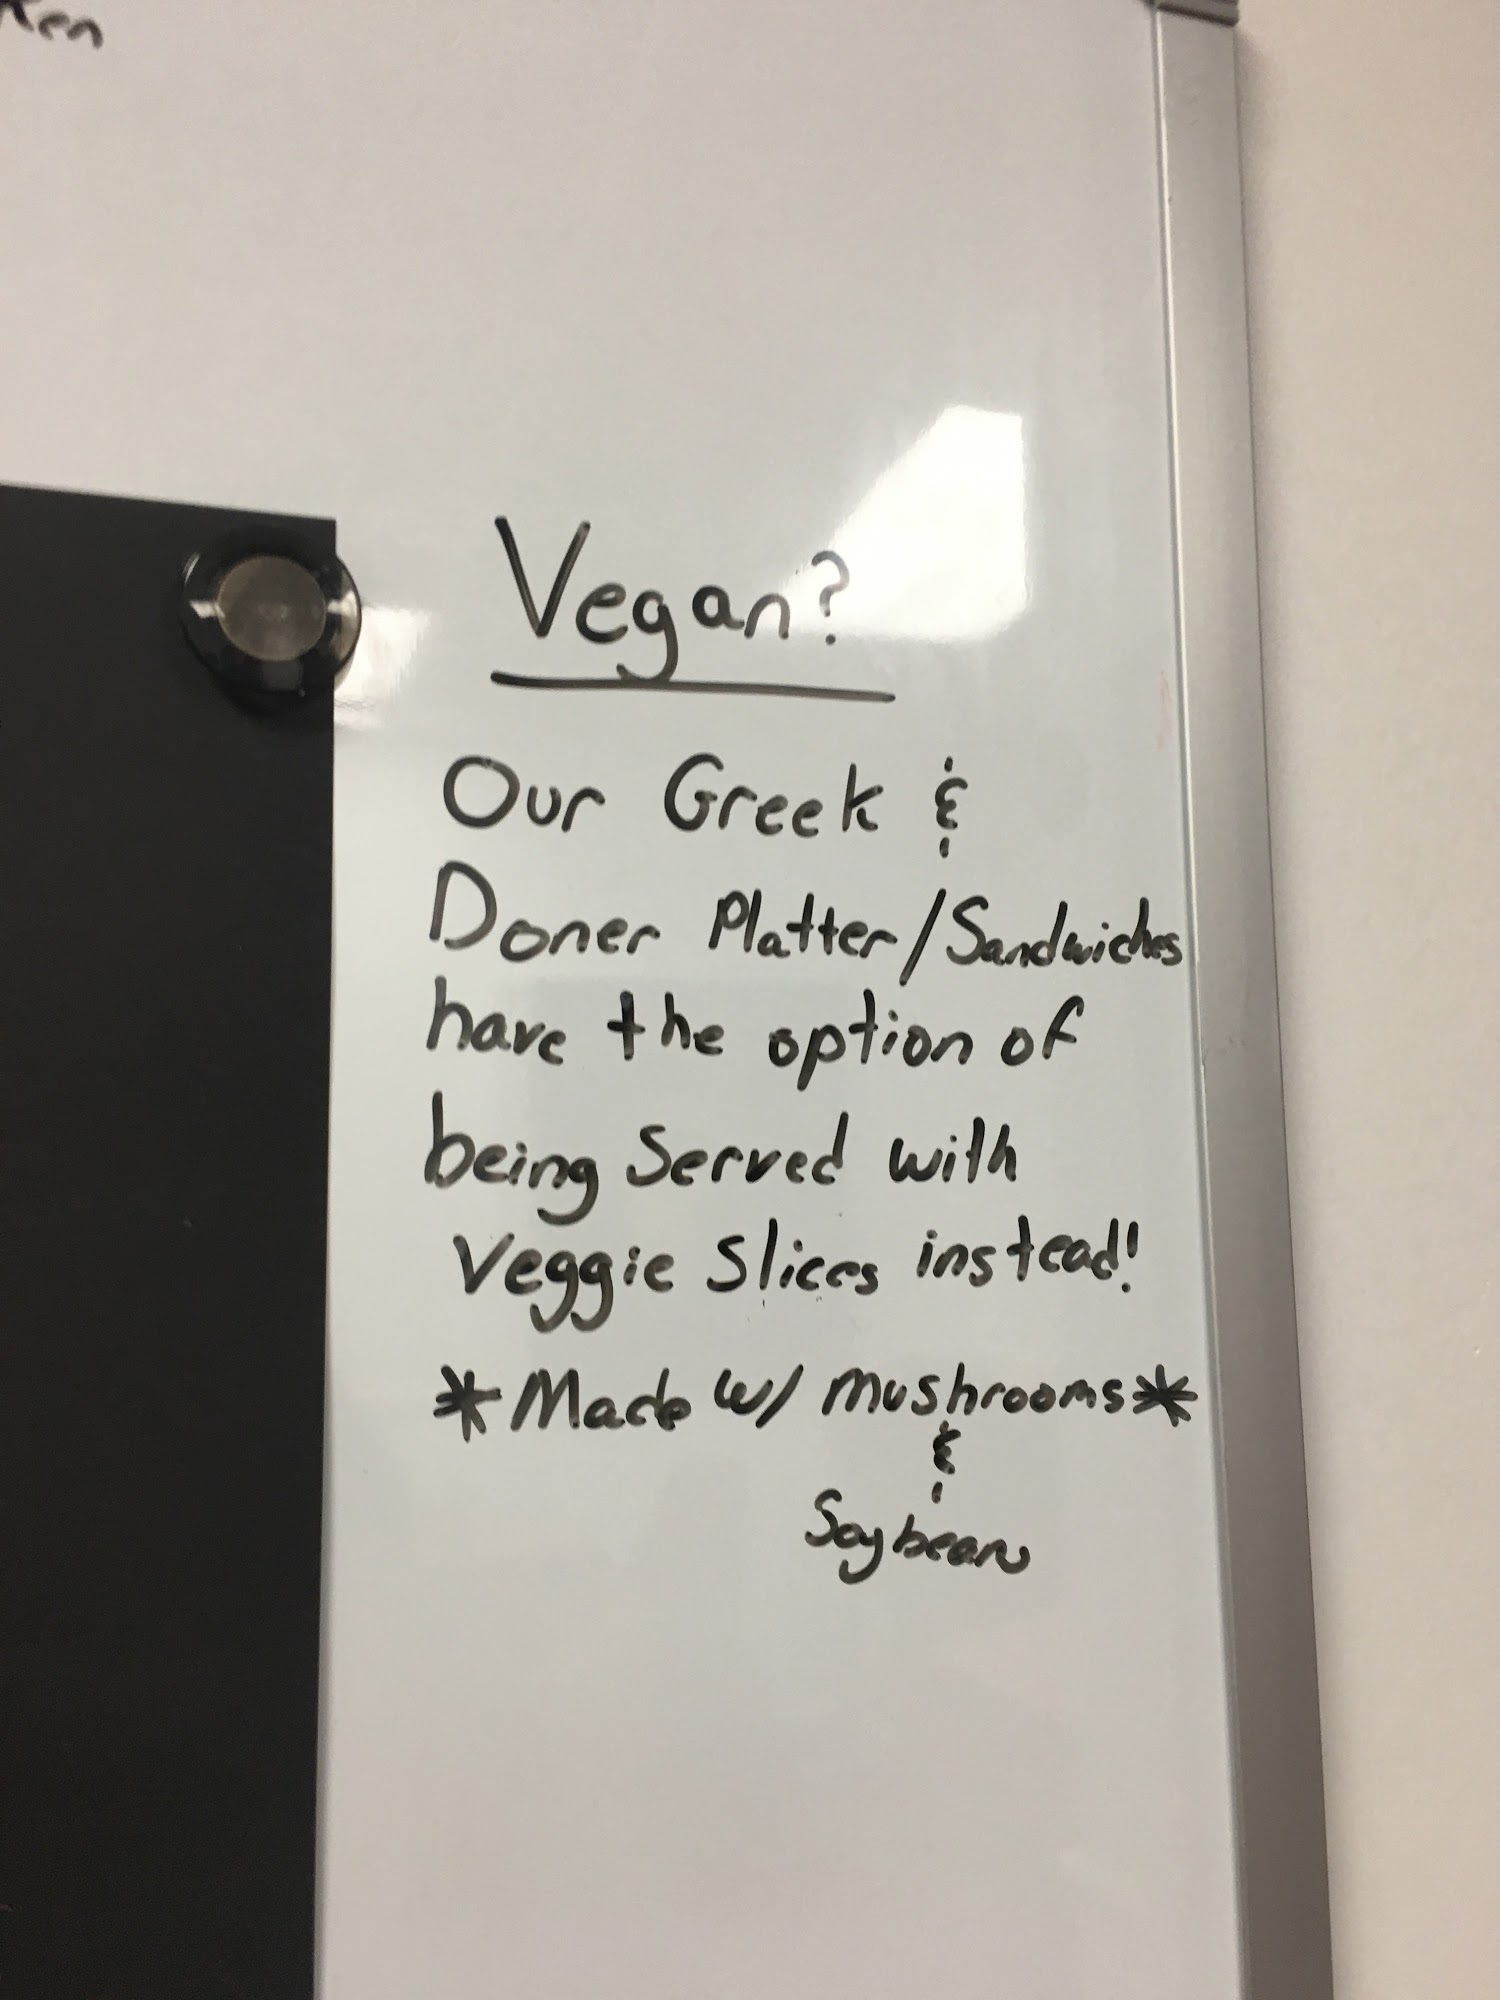 Vegan?
Our Greek &
Doner Platter/Sandwiches
have the option of
being Served with
Veggie Slices instead!
*Made w/ mushrooms*
&
Soybean